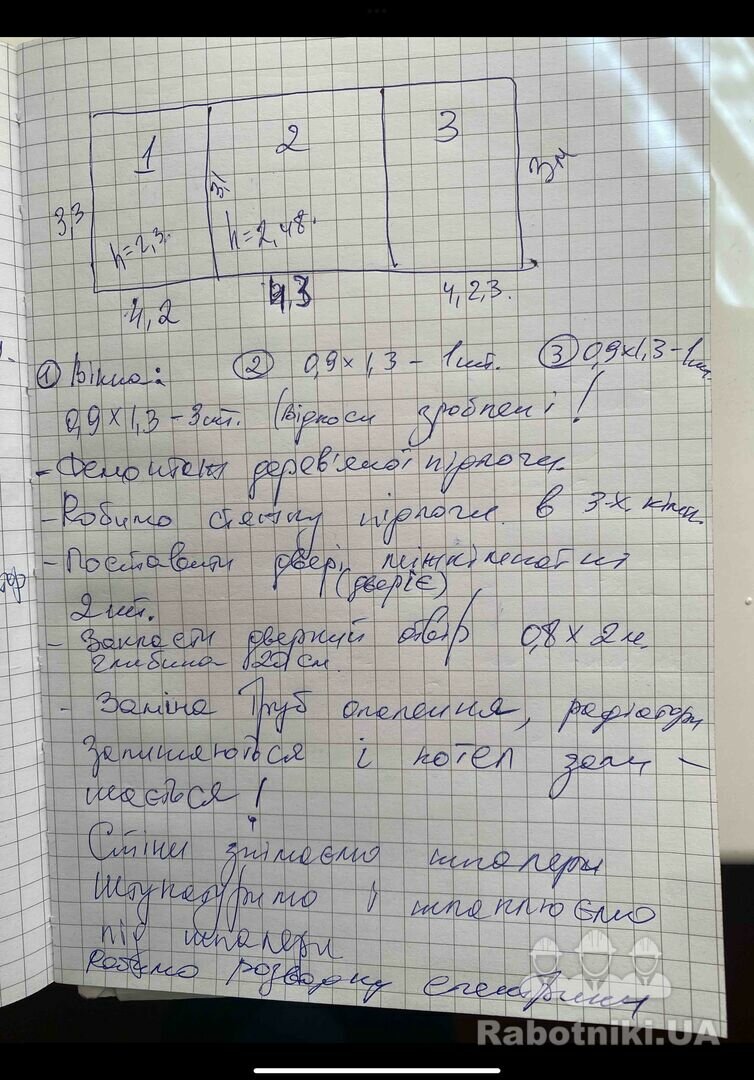 1 2 3
3,3 h=2,3. 3 h=2,48. 3м
4,2 4,3 4,2,3.
① Вікна: ② 0,9×1,3 – 1шт. ③ 0,9×1,3 – 1шт.
0,9×1,3 – 3шт. (відкоси зроблені!
- Демонтаж дерев'яної підлоги.
- Робимо стяжку підлоги. в 3-х кімн.
- Поставити двері міжкімнатні
(двері є)
2шт.
- Закласти дверний отвір 0,8×2м.
глибина 20 см.
- Заміна труб опалення, радіатори
залишаються і котел зали –
шається!
Стіни знімаємо шпалери
штукатуримо і шпаклюємо
під шпалери
Робимо розводку електрики
Rabotniki.UA